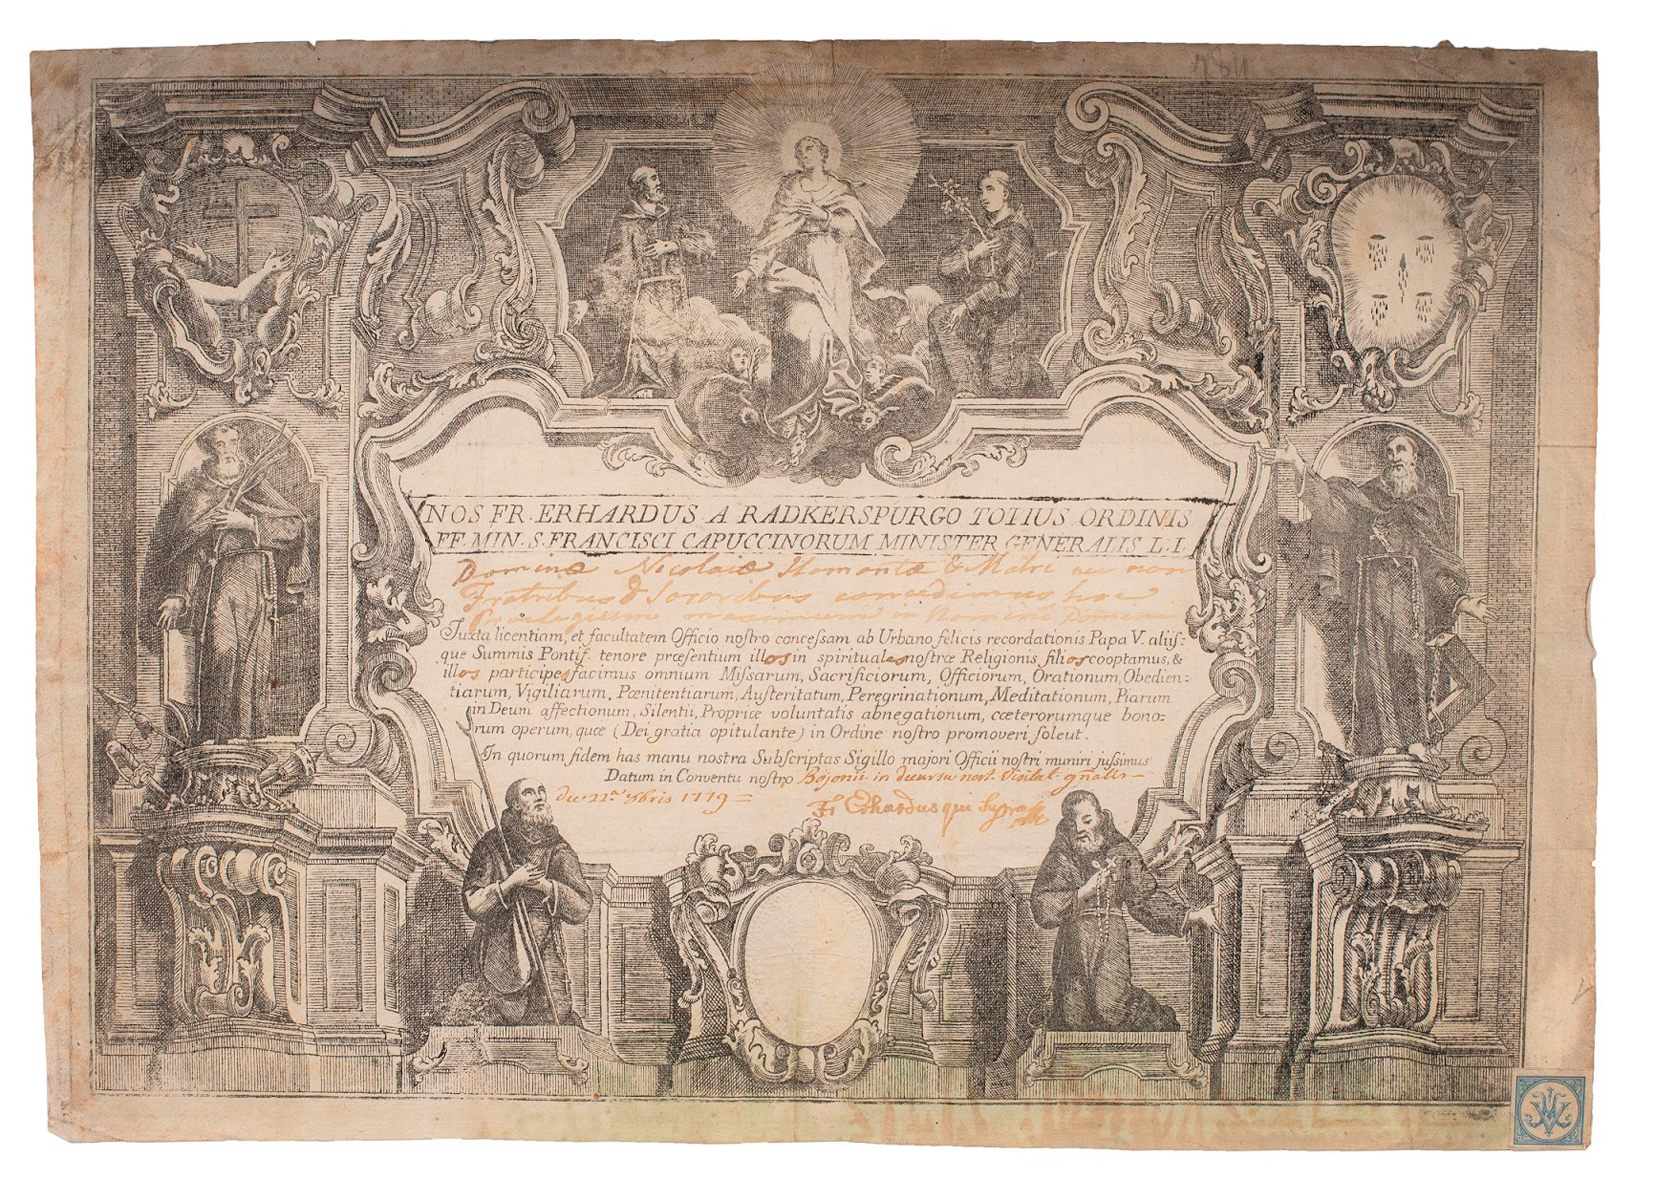 NOS FR. ERHARDUS A RADKERSPURGO TOTIUS ORDINIS
FF. MIN. S. FRANCISCI CAPUCCINORUM MINISTER GENERALIS L: I.
Dominæ Nicolaiæ & Matri nec non
Fratribus & Sororibus concedimus hoc
Privilegium maximum in Nomine Domini
Juxta licentiam, et facultatem Officio noſtro conceſsam ab Urbano felicis recordationis Papa V. aliiſ:
que Summis Pontif. tenore præſentium illos in spirituales noſtræ Religionis filios cooptamus, &
illos participes facimus omnium Miſsarum, Sacrificiorum, Officiorum, Orationum, Obedien:
tiarum, Vigiliarum, Pœnitentiarum, Auſteritatum, Peregrinationum, Meditationum, Piarum
in Deum affectionum, Silentii, Propriæ voluntatis abnegationum, cæterorumque bono:
rum operum, quæ (Dei gratia opitulante) in Ordine noſtro promoveri ſoleut.
In quorum fidem has manu nostra Subſcriptas Sigillo majori Officii noſtri muniri juſsimus
Datum in Conventu noſtro Posonii in decursu nost. Visitat. gn̄alis
die 22.a 1779
Fr Erhardus qui supra